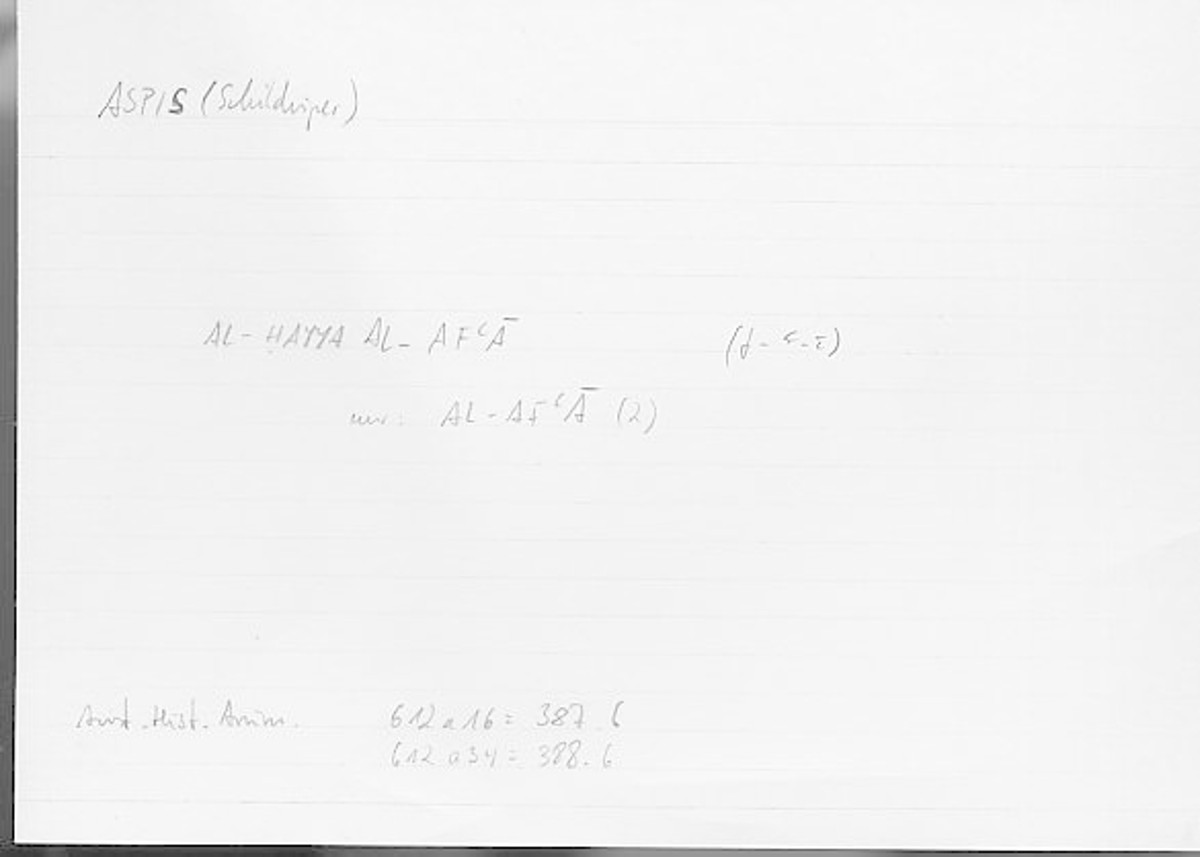 ASPIS (Schildviper)
AL-ḤAYYA AL-AFʿĀ (f-ʿ-ī)
nur: AL-AFʿĀ (2)
Arist. Hist. Anim. 612 a 16 = 387.6
612 a 34 = 388.6